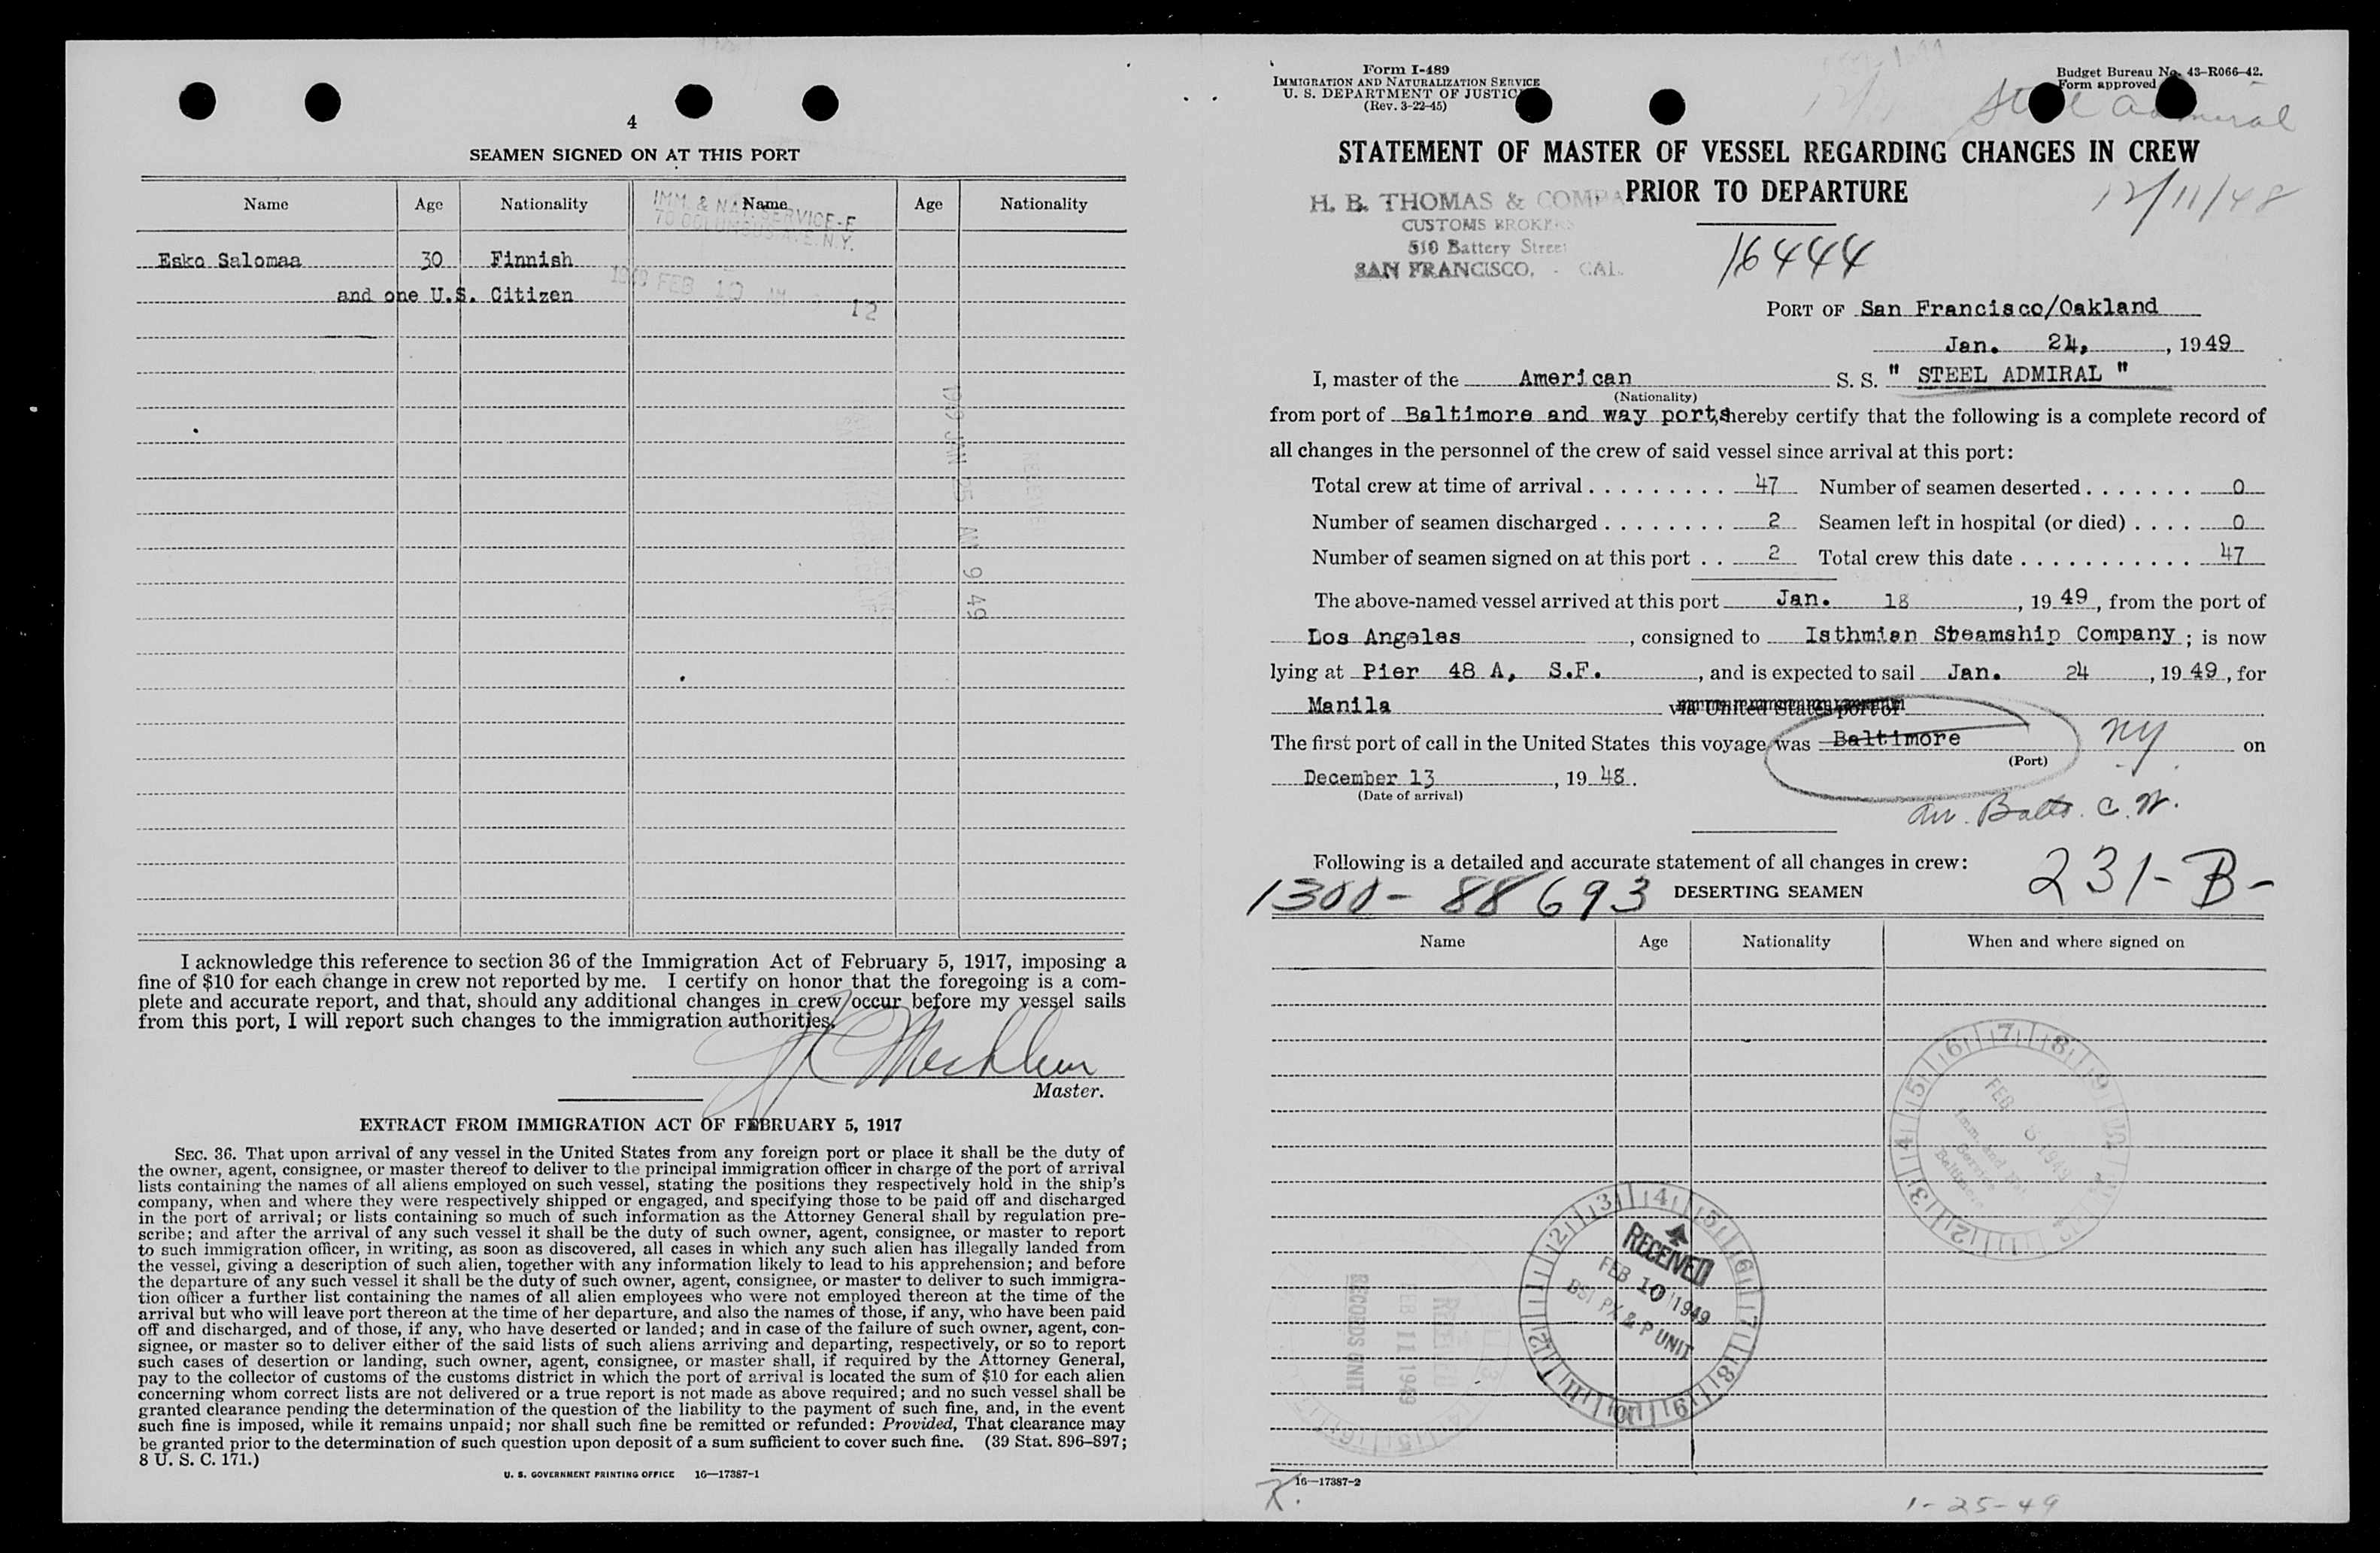 4
SEAMEN SIGNED ON AT THIS PORT
Name Age Nationality Name Age Nationality
IMM. & NAT. SERVICE-E
70 COLUMBUS AVE. N.Y.
Esko Salomaa 30 Finnish
1949 FEB 10 AM 12
and one U.S. Citizen
1949 JAN 25 AM 9 49
I acknowledge this reference to section 36 of the Immigration Act of February 5, 1917, imposing a
fine of $10 for each change in crew not reported by me. I certify on honor that the foregoing is a com-
plete and accurate report, and that, should any additional changes in crew occur before my vessel sails
from this port, I will report such changes to the immigration authorities.
Master.
EXTRACT FROM IMMIGRATION ACT OF FEBRUARY 5, 1917
SEC. 36. That upon arrival of any vessel in the United States from any foreign port or place it shall be the duty of
the owner, agent, consignee, or master thereof to deliver to the principal immigration officer in charge of the port of arrival
lists containing the names of all aliens employed on such vessel, stating the positions they respectively hold in the ship's
company, when and where they were respectively shipped or engaged, and specifying those to be paid off and discharged
in the port of arrival; or lists containing so much of such information as the Attorney General shall by regulation pre-
scribe; and after the arrival of any such vessel it shall be the duty of such owner, agent, consignee, or master to report
to such immigration officer, in writing, as soon as discovered, all cases in which any such alien has illegally landed from
the vessel, giving a description of such alien, together with any information likely to lead to his apprehension; and before
the departure of any such vessel it shall be the duty of such owner, agent, consignee, or master to deliver to such immigra-
tion officer a further list containing the names of all alien employees who were not employed thereon at the time of the
arrival but who will leave port thereon at the time of her departure, and also the names of those, if any, who have been paid
off and discharged, and of those, if any, who have deserted or landed; and in case of the failure of such owner, agent, con-
signee, or master so to deliver either of the said lists of such aliens arriving and departing, respectively, or so to report
such cases of desertion or landing, such owner, agent, consignee, or master shall, if required by the Attorney General,
pay to the collector of customs of the customs district in which the port of arrival is located the sum of $10 for each alien
concerning whom correct lists are not delivered or a true report is not made as above required; and no such vessel shall be
granted clearance pending the determination of the question of the liability to the payment of such fine, and, in the event
such fine is imposed, while it remains unpaid; nor shall such fine be remitted or refunded: Provided, That clearance may
be granted prior to the determination of such question upon deposit of a sum sufficient to cover such fine. (39 Stat. 896-897;
8 U. S. C. 171.)
U. S. GOVERNMENT PRINTING OFFICE 16—17387-1
Form I-489
IMMIGRATION AND NATURALIZATION SERVICE
U. S. DEPARTMENT OF JUSTICE
(Rev. 3-22-45)
Budget Bureau No. 43-R066-42.
Form approved
Steel Admiral
STATEMENT OF MASTER OF VESSEL REGARDING CHANGES IN CREW
PRIOR TO DEPARTURE
12/11/48
H. B. THOMAS & COMPA
CUSTOMS BROKERS
510 Battery Street
SAN FRANCISCO, - CAL.
16444
PORT OF San Francisco/Oakland
Jan. 24, , 1949
I, master of the American S. S. " STEEL ADMIRAL "
(Nationality)
from port of Baltimore and way ports, hereby certify that the following is a complete record of
all changes in the personnel of the crew of said vessel since arrival at this port:
Total crew at time of arrival . . . . . . . . . 47 Number of seamen deserted . . . . . . . 0
Number of seamen discharged . . . . . . . . 2 Seamen left in hospital (or died) . . . . 0
Number of seamen signed on at this port . . 2 Total crew this date . . . . . . . . . . . 47
The above-named vessel arrived at this port Jan. 18 , 19 49 , from the port of
Los Angeles , consigned to Isthmian Steamship Company ; is now
lying at Pier 48 A, S.F. , and is expected to sail Jan. 24 , 19 49 , for
Manila via United States port of
The first port of call in the United States this voyage was Baltimore NY on
(Port)
December 13 , 19 48 .
(Date of arrival)
arr. Balto. C.W.
Following is a detailed and accurate statement of all changes in crew:
1300-88693 DESERTING SEAMEN 231-B-
Name Age Nationality When and where signed on
FEB 1949
Imm. and Nat.
Service
Baltimore
RECEIVED
FEB 10 1949
BSI PX & P UNIT
RECEIVED
FEB 11 1949
RECORDS UNIT
16—17387-2
K.
1-25-49